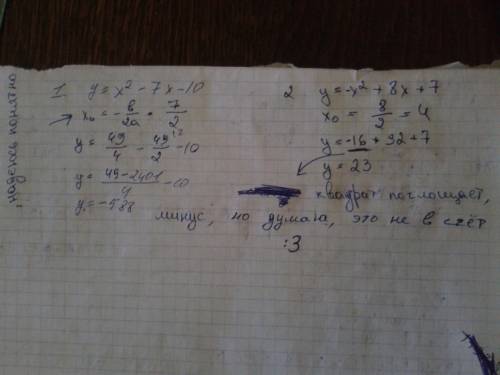 надеюсь понятно
1 y = x² - 7x - 10
x₀ = -в/2a = 7/2
y = 49/4 - 49/2 - 10
y = (49-2401)/4 - 10
y = -588
2 y = -x² + 8x + 7
x₀ = 8/2 = 4
y = -16 + 32 + 7
y = 23
квадрат поглощает,
минус, но думаю, это не в счёт
:3